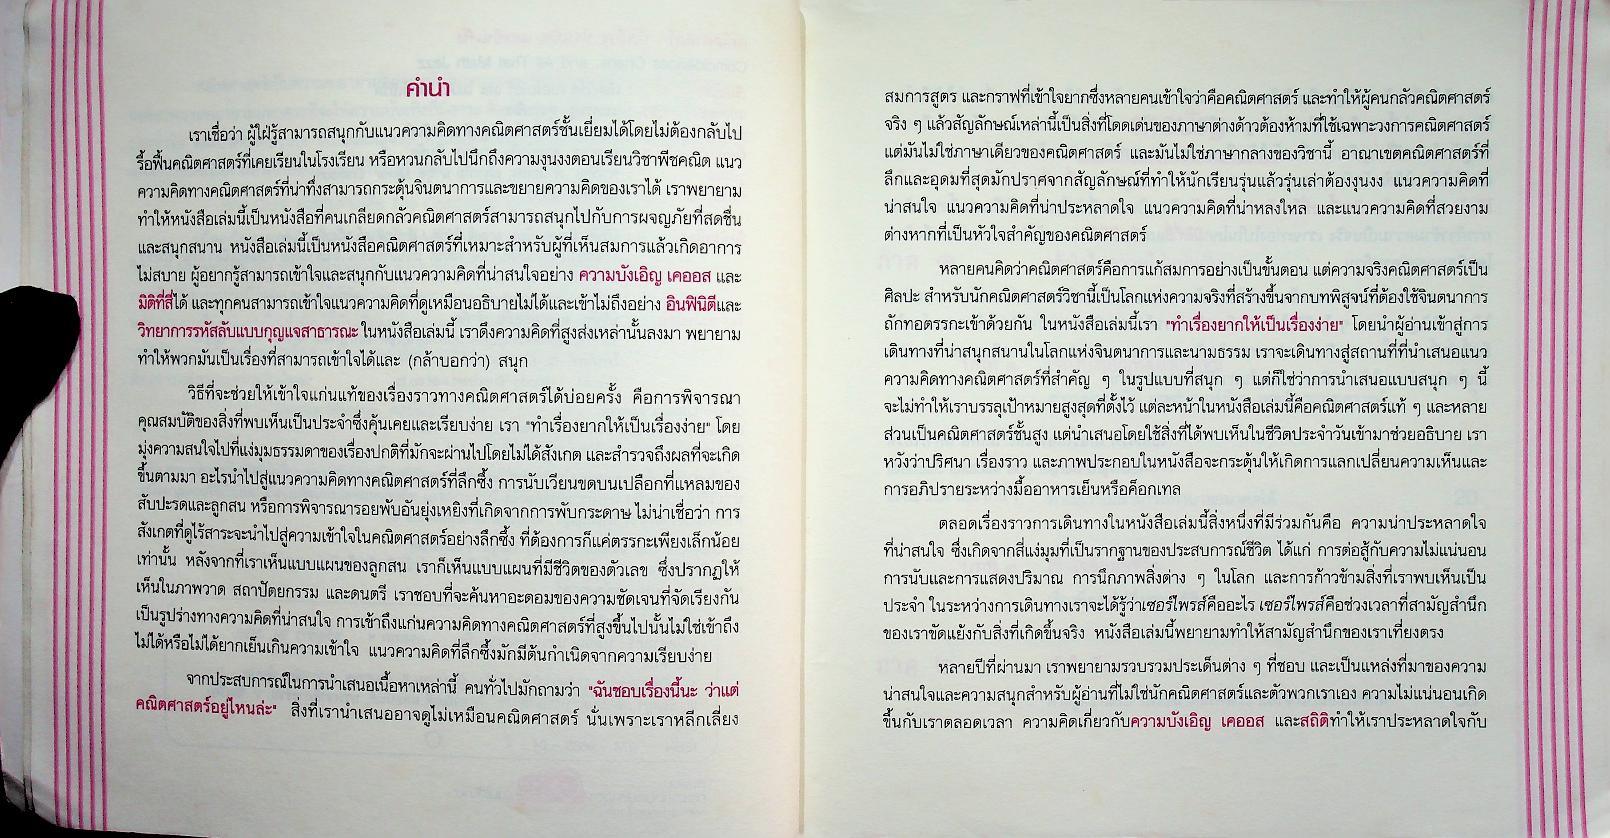 คำนำ
เราเชื่อว่า ผู้ใฝ่รู้สามารถสนุกกับแนวความคิดทางคณิตศาสตร์ชั้นเยี่ยมได้โดยไม่ต้องกลับไป
รื้อฟื้นคณิตศาสตร์ที่เคยเรียนในโรงเรียน หรือหวนกลับไปนึกถึงความงุนงงตอนเรียนวิชาพีชคณิต แนว
ความคิดทางคณิตศาสตร์ที่น่าทึ่งสามารถกระตุ้นจินตนาการและขยายความคิดของเราได้ เราพยายาม
ทำให้หนังสือเล่มนี้เป็นหนังสือที่คนเกลียดกลัวคณิตศาสตร์สามารถสนุกไปกับการผจญภัยที่สดชื่น
และสนุกสนาน หนังสือเล่มนี้เป็นหนังสือคณิตศาสตร์ที่เหมาะสำหรับผู้ที่เห็นสมการแล้วเกิดอาการ
ไม่สบาย ผู้อยากรู้สามารถเข้าใจและสนุกกับแนวความคิดที่น่าสนใจอย่าง ความบังเอิญ เคออส และ
มิติที่สี่ได้ และทุกคนสามารถเข้าใจแนวความคิดที่ดูเหมือนอธิบายไม่ได้และเข้าไม่ถึงอย่าง อินฟินิตีและ
วิทยาการรหัสลับแบบกุญแจสาธารณะ ในหนังสือเล่มนี้ เราดึงความคิดที่สูงส่งเหล่านั้นลงมา พยายาม
ทำให้พวกมันเป็นเรื่องที่สามารถเข้าใจได้และ (กล้าบอกว่า) สนุก
วิธีที่จะช่วยให้เข้าใจแก่นแท้ของเรื่องราวทางคณิตศาสตร์ได้บ่อยครั้ง คือการพิจารณา
คุณสมบัติของสิ่งที่พบเห็นเป็นประจำซึ่งคุ้นเคยและเรียบง่าย เรา "ทำเรื่องยากให้เป็นเรื่องง่าย" โดย
มุ่งความสนใจไปที่แง่มุมธรรมดาของเรื่องปกติที่มักจะผ่านไปโดยไม่ได้สังเกต และสำรวจถึงผลที่จะเกิด
ขึ้นตามมา อะไรนำไปสู่แนวความคิดทางคณิตศาสตร์ที่ลึกซึ้ง การนับเวียนขดบนเปลือกที่แหลมของ
สับปะรดและลูกสน หรือการพิจารณารอยพับอันยุ่งเหยิงที่เกิดจากการพับกระดาษ ไม่น่าเชื่อว่า การ
สังเกตที่ดูไร้สาระจะนำไปสู่ความเข้าใจในคณิตศาสตร์อย่างลึกซึ้ง ที่ต้องการก็แค่ตรรกะเพียงเล็กน้อย
เท่านั้น หลังจากที่เราเห็นแบบแผนของลูกสน เราก็เห็นแบบแผนที่มีชีวิตของตัวเลข ซึ่งปรากฏให้
เห็นในภาพวาด สถาปัตยกรรม และดนตรี เราชอบที่จะค้นหาอะตอมของความชัดเจนที่จัดเรียงกัน
เป็นรูปร่างทางความคิดที่น่าสนใจ การเข้าถึงแก่นความคิดทางคณิตศาสตร์ที่สูงขึ้นไปนั้นไม่ใช่เข้าถึง
ไม่ได้หรือไม่ได้ยากเย็นเกินความเข้าใจ แนวความคิดที่ลึกซึ้งมักมีต้นกำเนิดจากความเรียบง่าย
จากประสบการณ์ในการนำเสนอเนื้อหาเหล่านี้ คนทั่วไปมักถามว่า "ฉันชอบเรื่องนี้นะ ว่าแต่
คณิตศาสตร์อยู่ไหนล่ะ" สิ่งที่เรานำเสนออาจดูไม่เหมือนคณิตศาสตร์ นั่นเพราะเราหลีกเลี่ยง
สมการสูตร และกราฟที่เข้าใจยากซึ่งหลายคนเข้าใจว่าคือคณิตศาสตร์ และทำให้ผู้คนกลัวคณิตศาสตร์
จริง ๆ แล้วสัญลักษณ์เหล่านี้เป็นสิ่งที่โดดเด่นของภาษาต่างด้าวต้องห้ามที่ใช้เฉพาะวงการคณิตศาสตร์
แต่มันไม่ใช่ภาษาเดียวของคณิตศาสตร์ และมันไม่ใช่ภาษากลางของวิชานี้ อาณาเขตคณิตศาสตร์ที่
ลึกและอุดมที่สุดมักปราศจากสัญลักษณ์ที่ทำให้นักเรียนรุ่นแล้วรุ่นเล่าต้องงุนงง แนวความคิดที่
น่าสนใจ แนวความคิดที่น่าประหลาดใจ แนวความคิดที่น่าหลงใหล และแนวความคิดที่สวยงาม
ต่างหากที่เป็นหัวใจสำคัญของคณิตศาสตร์
หลายคนคิดว่าคณิตศาสตร์คือการแก้สมการอย่างเป็นขั้นตอน แต่ความจริงคณิตศาสตร์เป็น
ศิลปะ สำหรับนักคณิตศาสตร์วิชานี้เป็นโลกแห่งความจริงที่สร้างขึ้นจากบทพิสูจน์ที่ต้องใช้จินตนาการ
ถักทอตรรกะเข้าด้วยกัน ในหนังสือเล่มนี้เรา "ทำเรื่องยากให้เป็นเรื่องง่าย" โดยนำผู้อ่านเข้าสู่การ
เดินทางที่น่าสนุกสนานในโลกแห่งจินตนาการและนามธรรม เราจะเดินทางสู่สถานที่ที่นำเสนอแนว
ความคิดทางคณิตศาสตร์ที่สำคัญ ๆ ในรูปแบบที่สนุก ๆ แต่ก็ใช่ว่าการนำเสนอแบบสนุก ๆ นี้
จะไม่ทำให้เราบรรลุเป้าหมายสูงสุดที่ตั้งไว้ แต่ละหน้าในหนังสือเล่มนี้คือคณิตศาสตร์แท้ ๆ และหลาย
ส่วนเป็นคณิตศาสตร์ชั้นสูง แต่นำเสนอโดยใช้สิ่งที่ได้พบเห็นในชีวิตประจำวันเข้ามาช่วยอธิบาย เรา
หวังว่าปริศนา เรื่องราว และภาพประกอบในหนังสือจะกระตุ้นให้เกิดการแลกเปลี่ยนความเห็นและ
การอภิปรายระหว่างมื้ออาหารเย็นหรือค็อกเทล
ตลอดเรื่องราวการเดินทางในหนังสือเล่มนี้สิ่งหนึ่งที่มีร่วมกันคือ ความน่าประหลาดใจ
ที่น่าสนใจ ซึ่งเกิดจากสี่แง่มุมที่เป็นรากฐานของประสบการณ์ชีวิต ได้แก่ การต่อสู้กับความไม่แน่นอน
การนับและการแสดงปริมาณ การนึกภาพสิ่งต่าง ๆ ในโลก และการก้าวข้ามสิ่งที่เราพบเห็นเป็น
ประจำ ในระหว่างการเดินทางเราจะได้รู้ว่าเซอร์ไพรส์คืออะไร เซอร์ไพรส์คือช่วงเวลาที่สามัญสำนึก
ของเราขัดแย้งกับสิ่งที่เกิดขึ้นจริง หนังสือเล่มนี้พยายามทำให้สามัญสำนึกของเราเที่ยงตรง
หลายปีที่ผ่านมา เราพยายามรวบรวมประเด็นต่าง ๆ ที่ชอบ และเป็นแหล่งที่มาของความ
น่าสนใจและความสนุกสำหรับผู้อ่านที่ไม่ใช่นักคณิตศาสตร์และตัวพวกเราเอง ความไม่แน่นอนเกิด
ขึ้นกับเราตลอดเวลา ความคิดเกี่ยวกับความบังเอิญ เคออส และสถิติทำให้เราประหลาดใจกับ